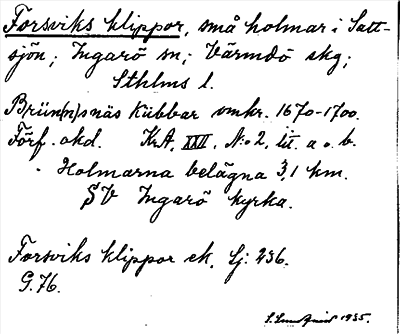 Forsviks klippor, små holmar i Satt-
sjön; Ingarö sn; Värmdö skg;
Sthlms l.
Brün(n)snäs Kübbar omkr. 1670-1700.
Förf. okd. KrA, XXV, No 2, lit. a o. b.
Holmarna belägna 3,1 km.
SV Ingarö kyrka.
Forsviks klippor ek. Lj: 236.
G. 76.
1935.